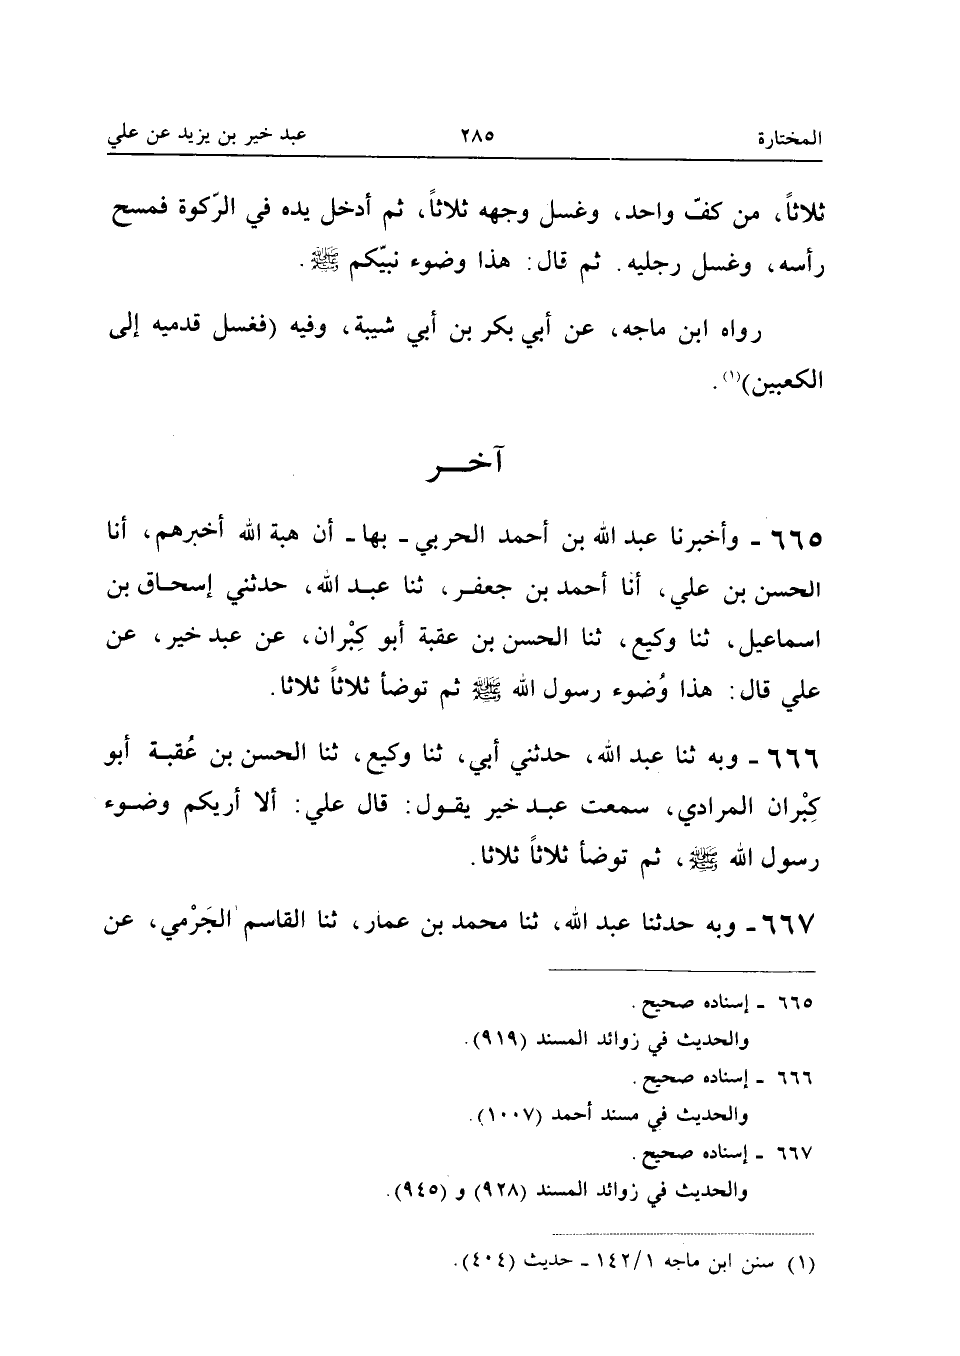 المختارة ٢٨٥ عبد خير بن يزيد عن علي
ثلاثاً، من كفّ واحد، وغسل وجهه ثلاثاً، ثم أدخل يده في الرّكوة فمسح
رأسه، وغسل رجليه. ثم قال: هذا وضوء نبيّكم ﷺ.
رواه ابن ماجه، عن أبي بكر بن أبي شيبة، وفيه (فغسل قدميه إلى
الكعبين)(١).
آخـــر
٦٦٥ - وأخبرنا عبد الله بن أحمد الحربي - بها - أن هبة الله أخبرهم، أنا
الحسن بن علي، أنا أحمد بن جعفـر، ثنا عبـد الله، حدثني إسحـاق بن
اسماعيل، ثنا وكيع، ثنا الحسن بن عقبة أبو كِبْران، عن عبد خير، عن
علي قال: هذا وُضوء رسول الله ﷺ ثم توضأ ثلاثاً ثلاثا.
٦٦٦ - وبه ثنا عبد الله، حدثني أبي، ثنا وكيع، ثنا الحسن بن عُقبـة أبو
كِبْران المرادي، سمعت عبـد خير يقـول: قال علي: ألا أريكم وضـوء
رسول الله ﷺ، ثم توضأ ثلاثاً ثلاثا.
٦٦٧ - وبه حدثنا عبد الله، ثنا محمد بن عمار، ثنا القاسم الجَرْمي، عن
٦٦٥ - إسناده صحيح.
والحديث في زوائد المسند (٩١٩).
٦٦٦ - إسناده صحيح.
والحديث في مسند أحمد (١٠٠٧).
٦٦٧ - إسناده صحيح.
والحديث في زوائد المسند (٩٢٨) و (٩٤٥).
(١) سنن ابن ماجه ١/١٤٢ - حديث (٤٠٤).